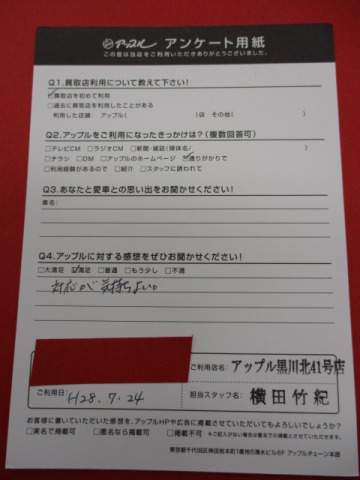 アップル アンケート用紙
この度は当店をご利用いただきありがとうございました。
Q1.買取店利用について教えて下さい!
☑買取店を初めて利用
□過去に買取店を利用したことがある
利用した店舗：アップル( )店 その他( )
Q2.アップルをご利用になったきっかけは?(複数回答可)
□テレビCM □ラジオCM □新聞・雑誌(媒体名/ )
□チラシ □DM □アップルのホームページ ☑通りがかりで
□利用経験があるので □紹介 □スタッフに誘われて
Q3.あなたと愛車との思い出をお聞かせください!
車名：
Q4.アップルに対する感想をぜひお聞かせください!
□大満足 ☑満足 □普通 □もう少し □不満
対応が気持ちよい。
ご利用店名：アップル黒川北41号店
ご利用日：H28.7.24
担当スタッフ名：横田竹紀
お客様に書いていただいた感想を、アップルHPや広告に掲載させていただいてもよろしいでしょうか?
□実名で掲載可 □匿名なら掲載可 □掲載不可 ※ご記入がない場合は匿名での掲載とさせていただきます。
東京都千代田区神田岩本町1番地5清水ビル6F アップルチェーン本部